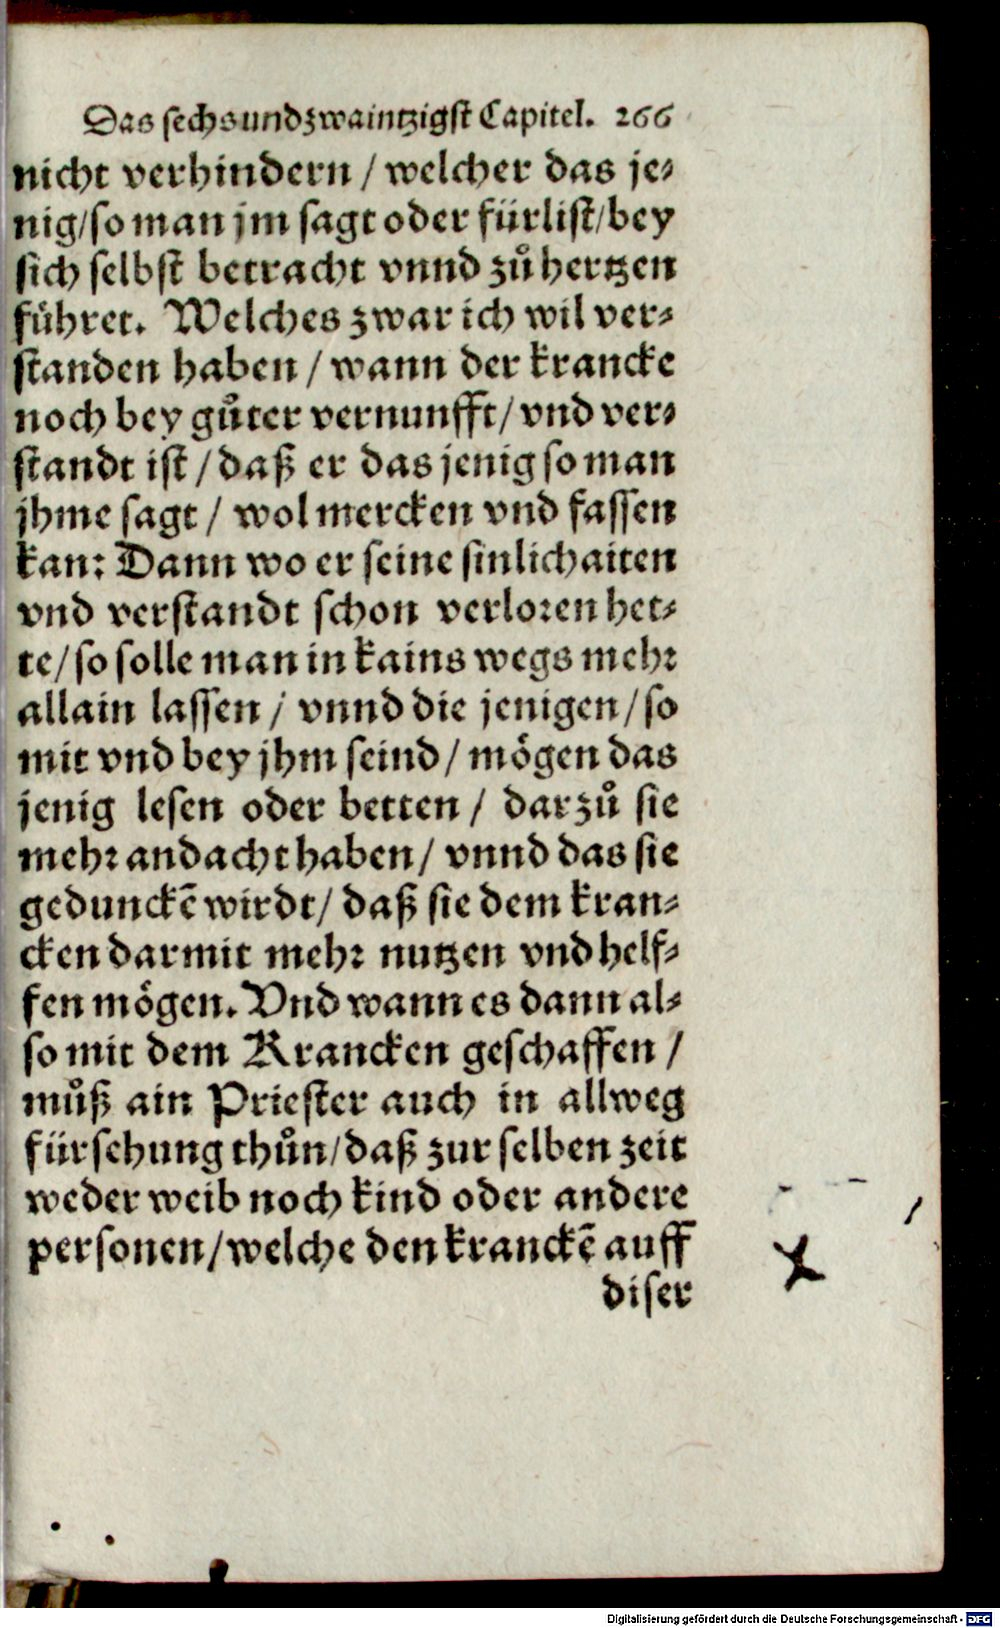 Das sechsundzwaintzigst Capitel. 266
nicht verhindern / welcher das je⸗
nig/so man jm sagt oder fürlist/bey
sich selbst betracht vnnd zů hertzen
führet. Welches zwar ich wil ver⸗
standen haben / wann der krancke
noch bey gůter vernunfft/ vnd ver⸗
standt ist / daß er das jenig so man
jhme sagt / wol mercken vnd fassen
kan: Dann wo er seine sinlichaiten
vnd verstandt schon verloren het⸗
te/ so solle man in kains wegs mehr
allain lassen / vnnd die jenigen / so
mit vnd bey jhm seind / mögen das
jenig lesen oder betten / darzů sie
mehr andacht haben / vnnd das sie
gedunckē wirdt/ daß sie dem kran⸗
cken darmit mehr nutzen vnd helf⸗
fen mögen. Vnd wann es dann al⸗
so mit dem Krancken geschaffen /
můß ain Priester auch in allweg
fürsehung thůn/daß zur selben zeit
weder weib noch kind oder andere
personen/welche den kranckē auff
diser
Digitalisierung gefördert durch die Deutsche Forschungsgemeinschaft - DFG